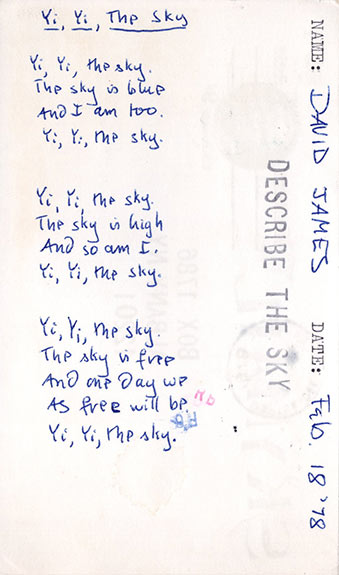 Yi, Yi, The Sky
Yi, Yi, the sky.
The sky is blue
And I am too.
Yi, Yi, the sky.
Yi, Yi, the sky.
The sky is high
And so am I.
Yi, Yi, the sky.
Yi, Yi, the sky.
The sky is free
And one day we
As free will be.
Yi, Yi, the sky.
DESCRIBE THE SKY
NAME: DAVID JAMES
DATE: Feb. 18 '78